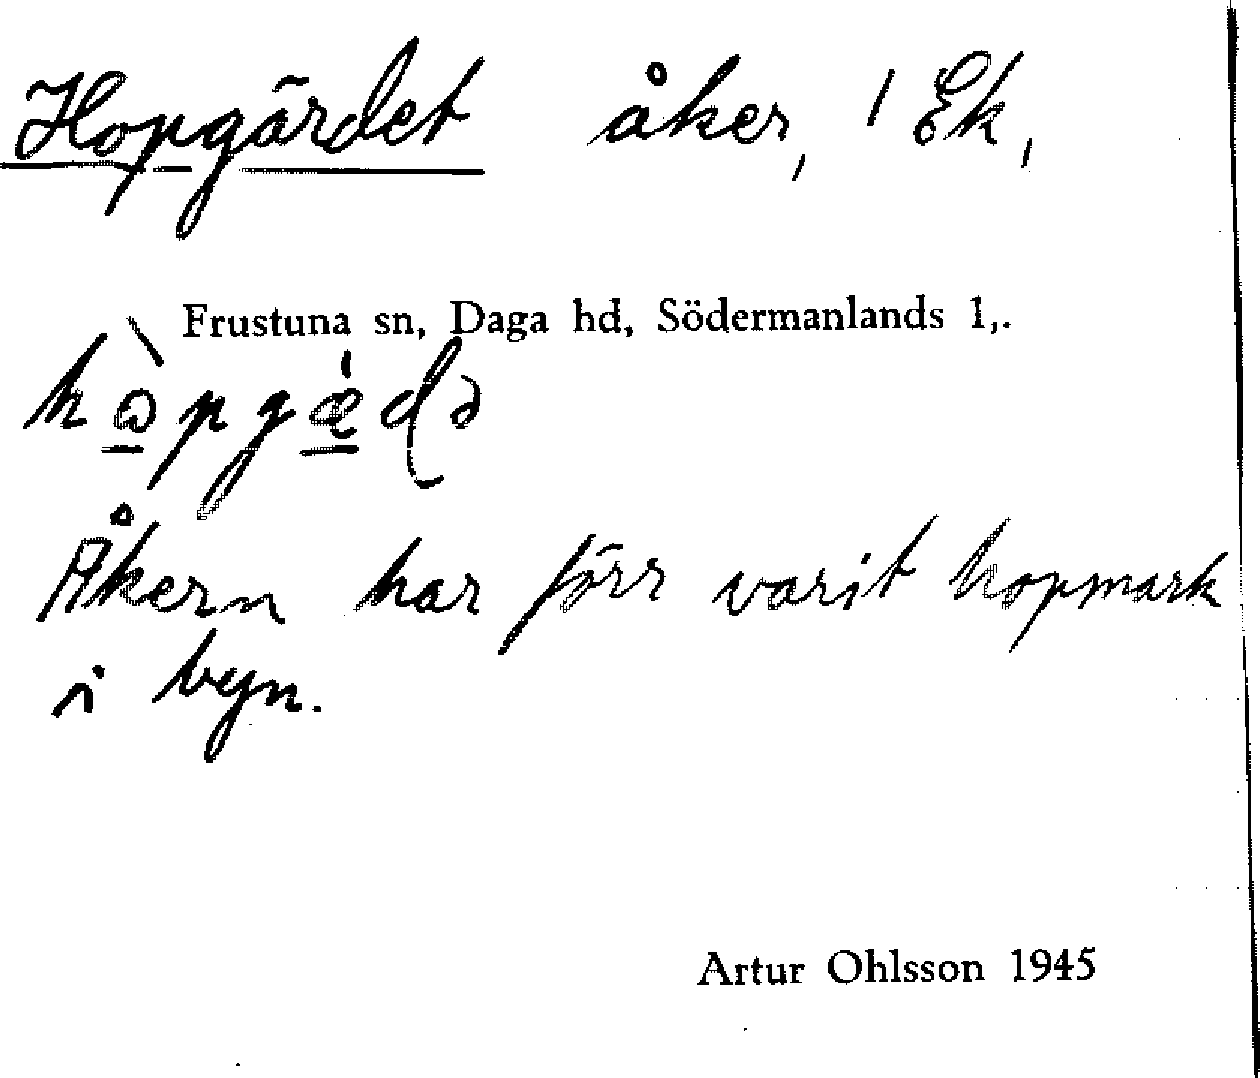 Hopgärdet åker, 1 Ek,
Frustuna sn, Daga hd, Södermanlands l,.
Åkern har förr varit hopmark
i byn.
Artur Ohlsson 1945